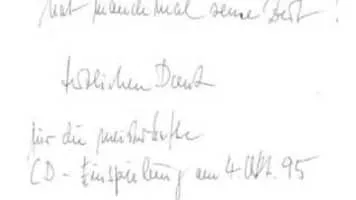 hat manchmal seine Zeit!
herzlichen Dank
für die meisterhafte
CD-Einspielung am 4. Okt. 95